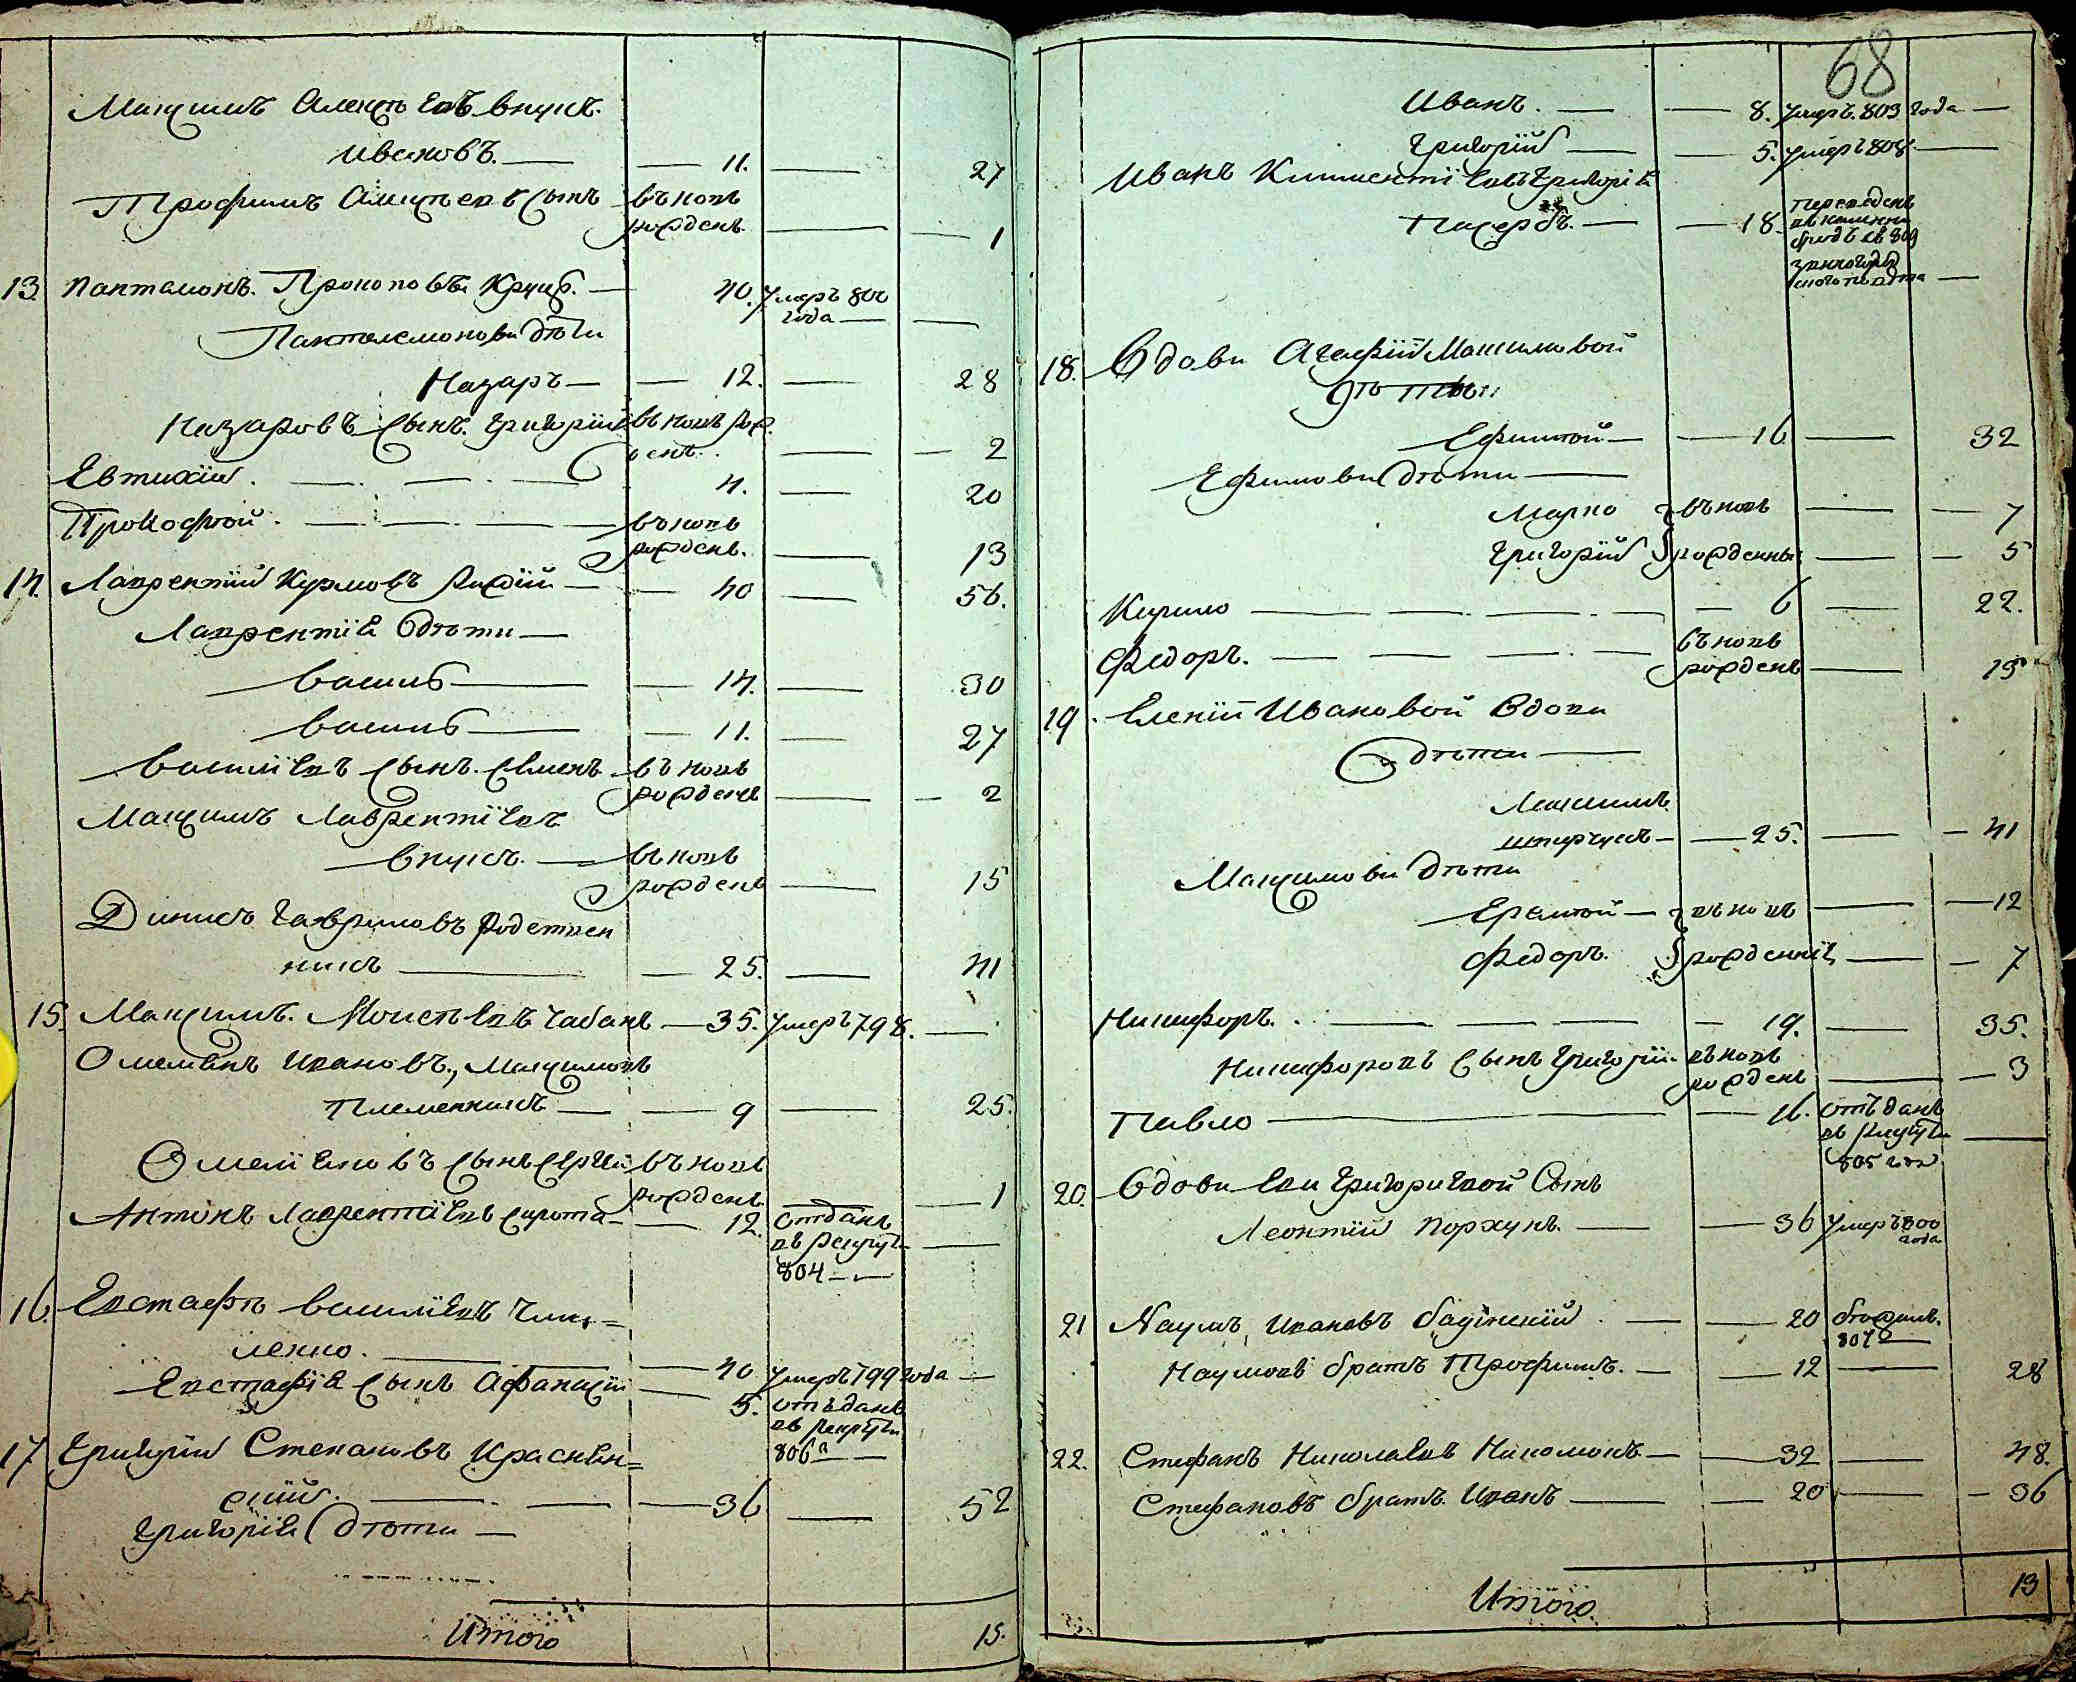 Максимъ Алексѣевъ внукъ
Ивановъ. 11. 27
Трофимъ сынъ въновь
рожденъ 1
13. Панталемонъ Прокоповъ 40. умеръ 800
года
Панталемонови дѣти
Назаръ 12. 28
Назаровъ сынъ Григорій въновь рож
денъ 2
Евтихій 4. 20
Прокофтой въновь
рожденъ. 13
14. Лаврентій Курмовъ Рижій 40 56.
Лаврентіевы дѣти
Василь 14. 30
Василь 11. 27
Василіевъ сынъ Семенъ въновь
рожденъ 2
Максимъ Лаврентіевъ
внукъ въновь
рожденъ 15
Динисъ Гавриловъ родствен
никъ 25. 41
15. Максимъ Моисѣевъ Чабанъ 35. умеръ 798.
Омелянъ Ивановъ, Максимовъ
племенникъ 9 25.
Омеляновъ сынъ Сергій въновь
рожденъ 1
Антонъ Лаврентіевъ сирота 12. отданъ
въ рекруты
804
16. Евстафъ Василіевъ
ленко. 40 умеръ 799 года
Евстафіевъ сынъ Афанасій 5. отъданъ
въ рекруты
806
17 Григорій Степановъ Краснян=
скій. 36 52
Григоріевы дѣти
Итого 15.
68
Иванъ. 8. умеръ 803 года
Григорій 5. умеръ 808
Иванъ Климентіевъ Григоріевъ
пасербъ. 18. переведенъ
въ каменни
бродъ въ 809
звеногород
ского повѣта
18. Вдови Агафіи Максимовой
дѣти
Ефимтой 16 32
Ефимови дѣти
Марко въновь 7
Григорій рожденны 5
Кирило 6 22.
Федоръ. въновь
рожденъ 15
19. Еленіи Ивановой вдови
дѣти
Максимъ
25. 41
Максимови дѣти
Ермтой въновь 12
Федоръ. рожденніе 7
Никифоръ. 19. 35.
Никифоровъ сынъ Григорій въновь
рожденъ 3
Павло 16. отъданъ
въ рекруты
805 года
20. Вдови Еви Григориевой сынъ
Леонтій Порхунъ. 36 умеръ 800
года
21 Наумъ Ивановъ 20 бѣжилъ.
807
Наумовъ братъ Трофимъ. 12 28
22. Стефанъ Николаевъ Никомонъ 32 48.
Стефановъ братъ Иванъ 20 36
Итого 13